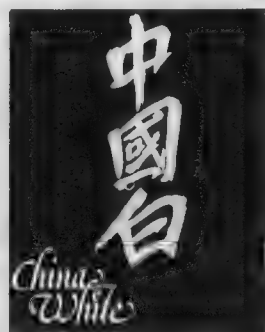 中國白
China
White